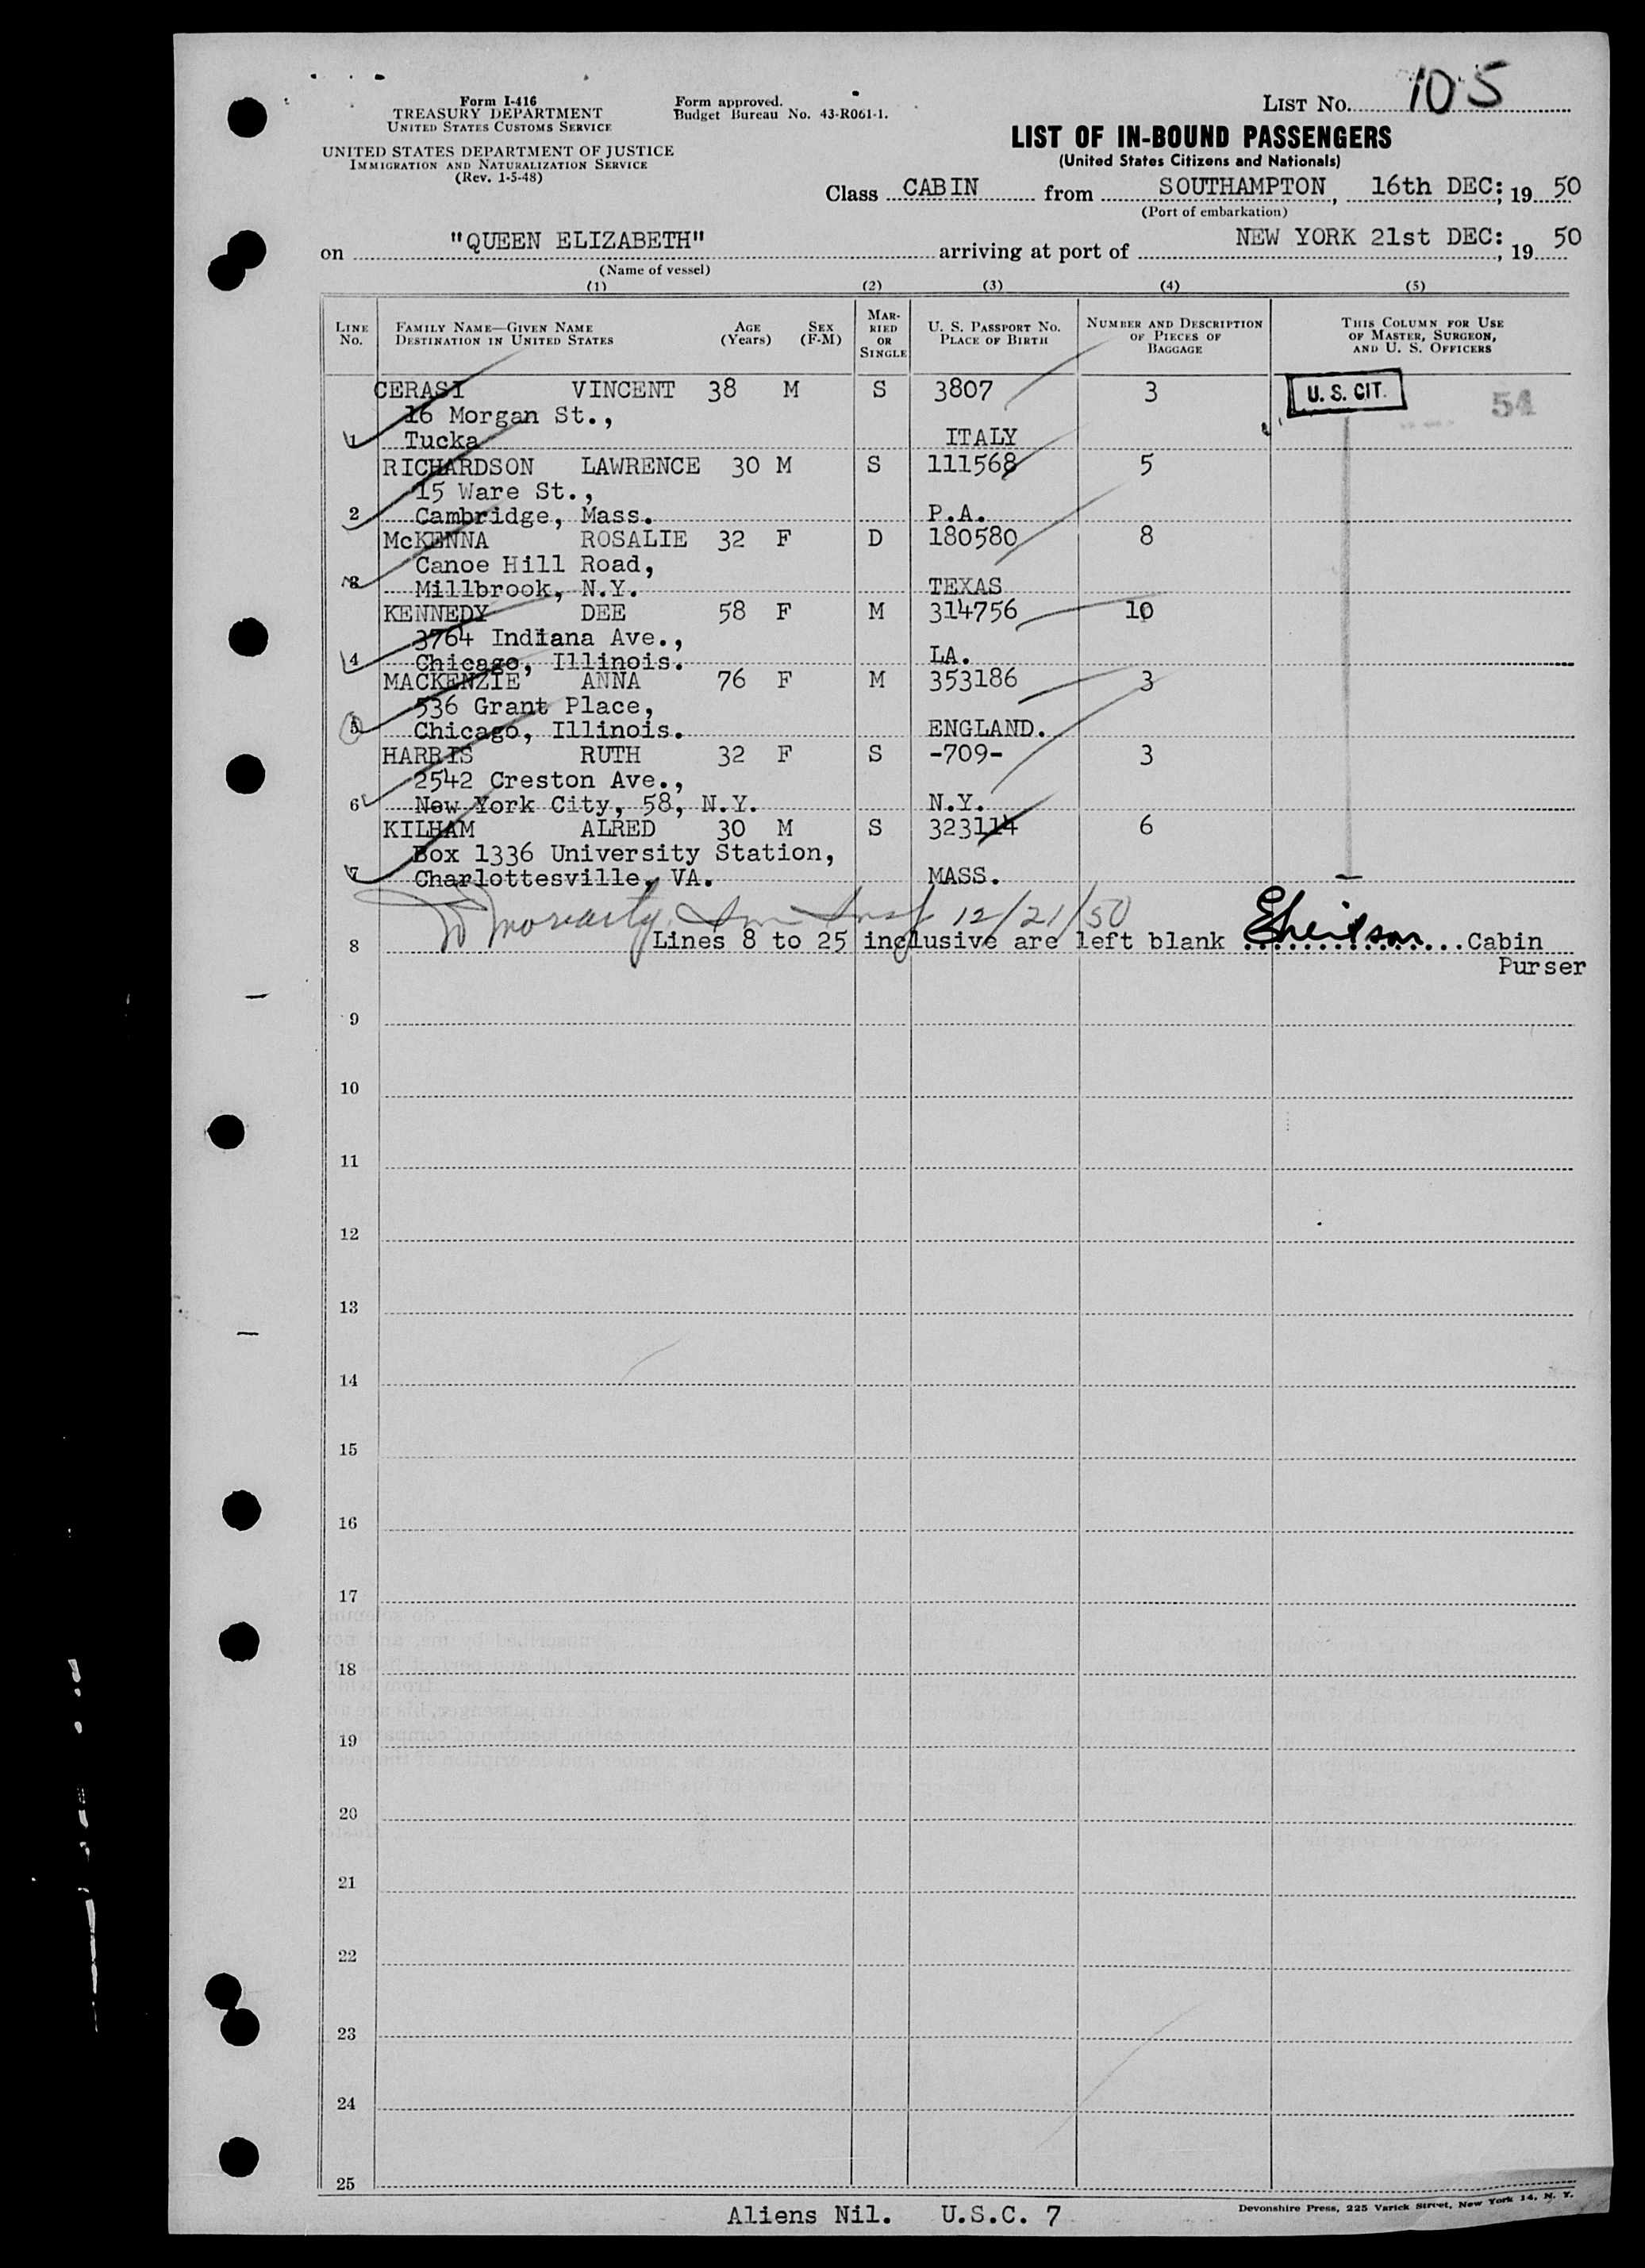 Form I-416
TREASURY DEPARTMENT
UNITED STATES CUSTOMS SERVICE
UNITED STATES DEPARTMENT OF JUSTICE
IMMIGRATION AND NATURALIZATION SERVICE
(Rev. 1-5-48)
Form approved.
Budget Bureau No. 43-R061-1.
LIST NO. 105
LIST OF IN-BOUND PASSENGERS
(United States Citizens and Nationals)
Class CABIN from SOUTHAMPTON, 16th DEC:, 19 50
(Port of embarkation)
on "QUEEN ELIZABETH" arriving at port of NEW YORK 21st DEC:, 19 50
(Name of vessel)
(1) (2) (3) (4) (5)
LINE NO. FAMILY NAME—GIVEN NAME DESTINATION IN UNITED STATES AGE (Years) SEX (F-M) MARRIED OR SINGLE U. S. PASSPORT NO. PLACE OF BIRTH NUMBER AND DESCRIPTION OF PIECES OF BAGGAGE THIS COLUMN FOR USE OF MASTER, SURGEON, AND U. S. OFFICERS
CERASI VINCENT 38 M S 3807 3 U. S. CIT. 54
16 Morgan St.,
1 Tucka ITALY
RICHARDSON LAWRENCE 30 M S 111568 5
15 Ware St.,
2 Cambridge, Mass. P.A.
McKENNA ROSALIE 32 F D 180580 8
Canoe Hill Road,
3 Millbrook, N.Y. TEXAS
KENNEDY DEE 58 F M 314756 10
3764 Indiana Ave.,
4 Chicago, Illinois. LA.
MACKENZIE ANNA 76 F M 353186 3
536 Grant Place,
5 Chicago, Illinois. ENGLAND.
HARRIS RUTH 32 F S -709- 3
2542 Creston Ave.,
6 New York City, 58, N.Y. N.Y.
KILHAM ALRED 30 M S 323114 6
Box 1336 University Station,
7 Charlottesville, VA. MASS.
Moriarty Imm Insp 12/21/50
8 Lines 8 to 25 inclusive are left blank Cabin
Purser
9
10
11
12
13
14
15
16
17
18
19
20
21
22
23
24
25
Aliens Nil. U.S.C. 7
Devonshire Press, 225 Varick Street, New York 14, N. Y.